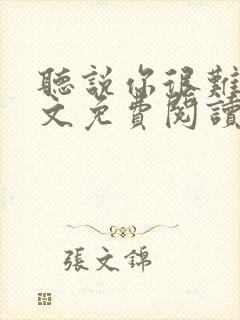 聽說你很難
文免費閱讀
張文錦